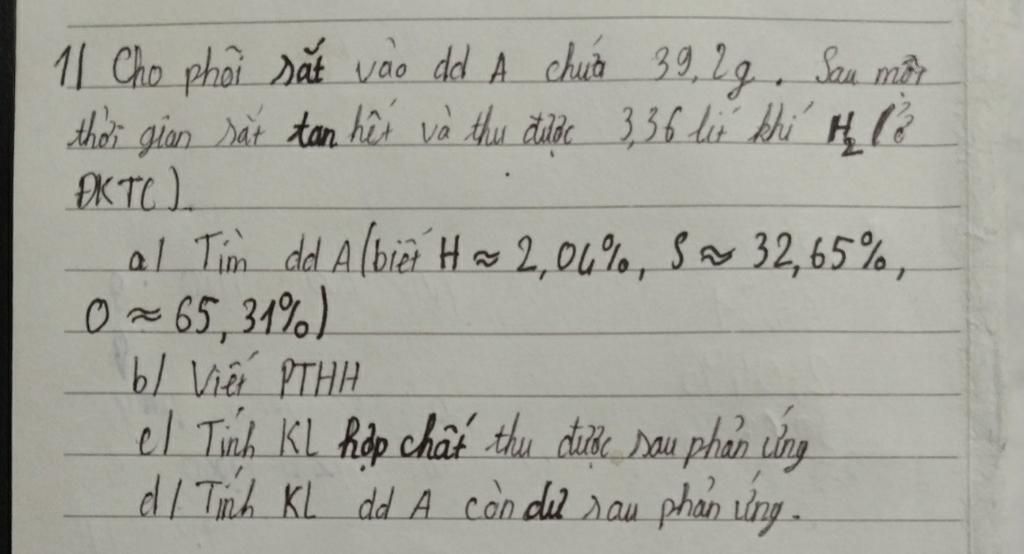 1/ Cho phôi sắt vào dd A chứa 39,2g. Sau một
thời gian sắt tan hết và thu được 3,36 lít khí H₂ (ở
ĐKTC).
a/ Tìm dd A (biết H ≈ 2,04%, S ≈ 32,65%,
O ≈ 65,31%)
b/ Viết PTHH
c/ Tính KL hợp chất thu được sau phản ứng
d/ Tính KL dd A còn dư sau phản ứng.